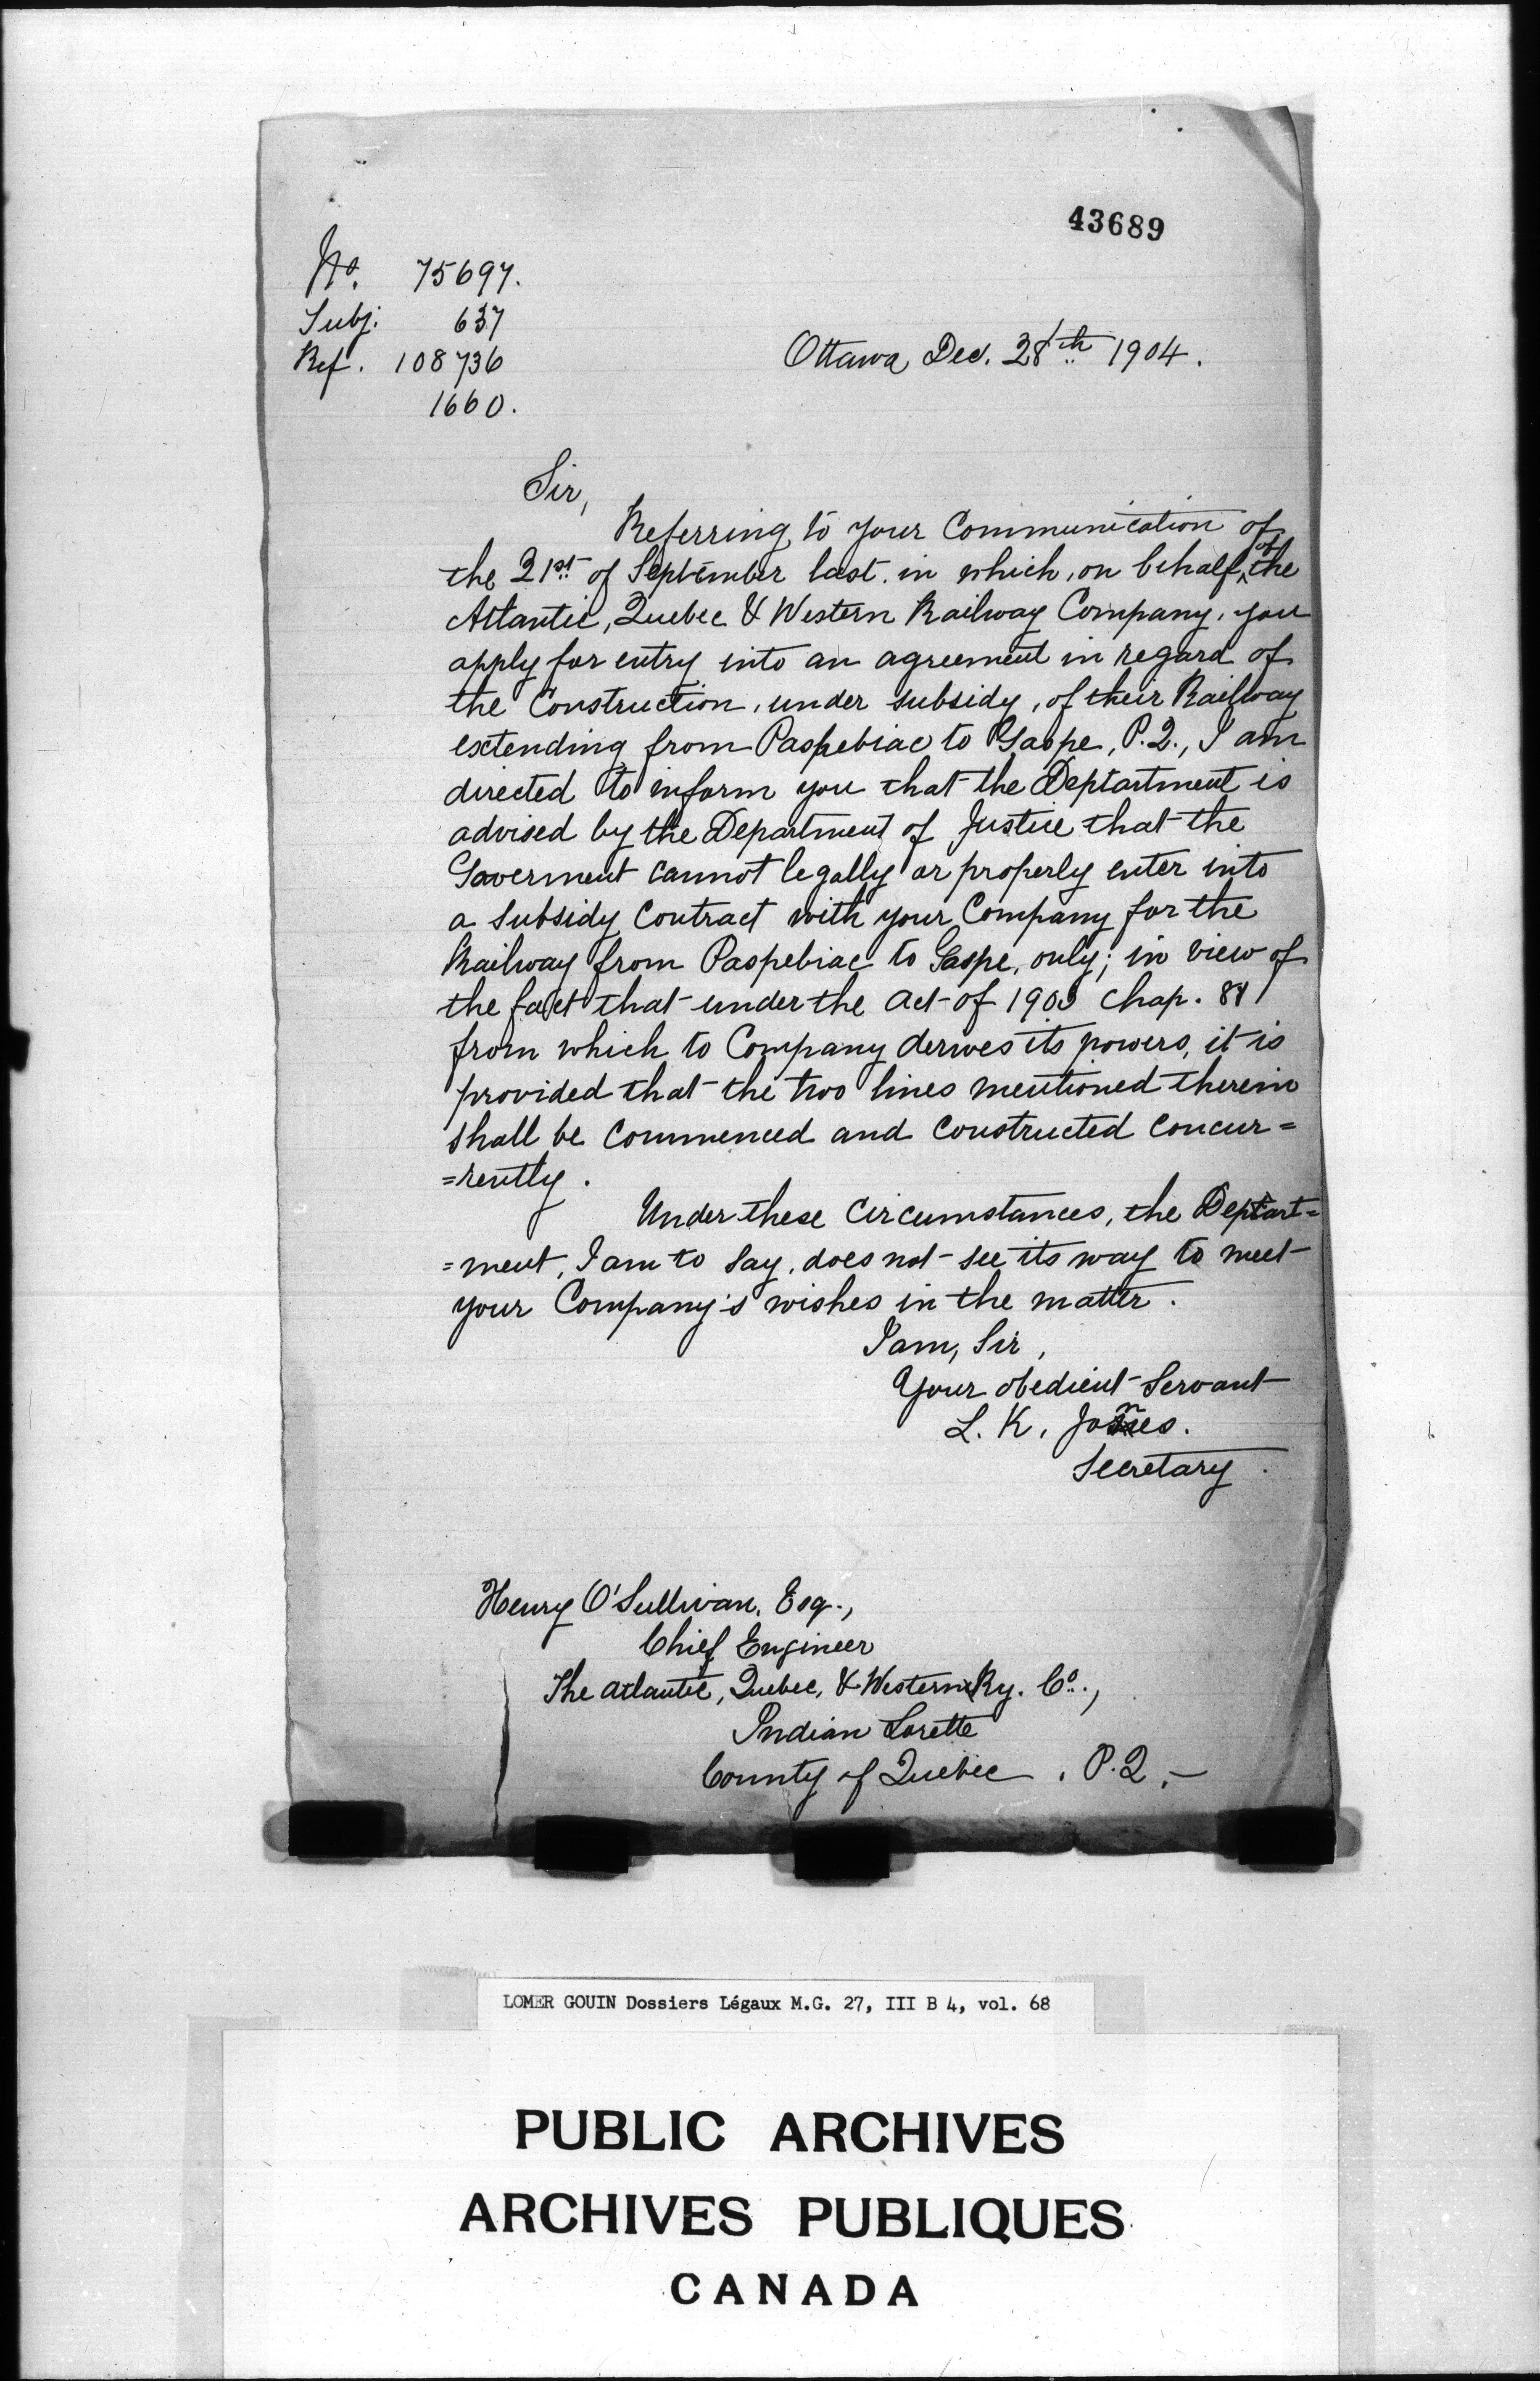 43689
No. 75697.
Subj: 637
Ref. 108736
1660.
Ottawa Dec. 28th 1904.
Sir,
Referring to your Communication of
the 21st of September last. in which, on behalf of the
Atlantic, Quebec & Western Railway Company, you
apply for entry into an agreement in regard of
the Construction, under subsidy, of their Railway
extending from Paspebiac to Gaspe, P.Q., I am
directed to inform you that the Deptartment is
advised by the Department of Justice that the
Goverment cannot legally or properly enter into
a Subsidy Contract with your Company for the
Railway from Paspebiac to Gaspe, only; in view of
the fact that under the Act of 1903 Chap. 81
from which to Company derives its powers, it is
provided that the two lines mentioned therein
shall be Commenced and Constructed Concur=
=rently.
Under these Circumstances, the Deptart=
=ment, I am to say, does not see its way to meet
your Company's wishes in the matter.
I am, Sir,
Your obedient Servant
L. K. Jones.
Secretary.
Henry O'Sullivan, Esq.,
Chief Engineer
The Atlantic, Quebec, & Western Ry. Co.,
Indian Lorette
County of Quebec, P.Q.—
LOMER GOUIN Dossiers Légaux M.G. 27, III B 4, vol. 68
PUBLIC ARCHIVES
ARCHIVES PUBLIQUES
CANADA